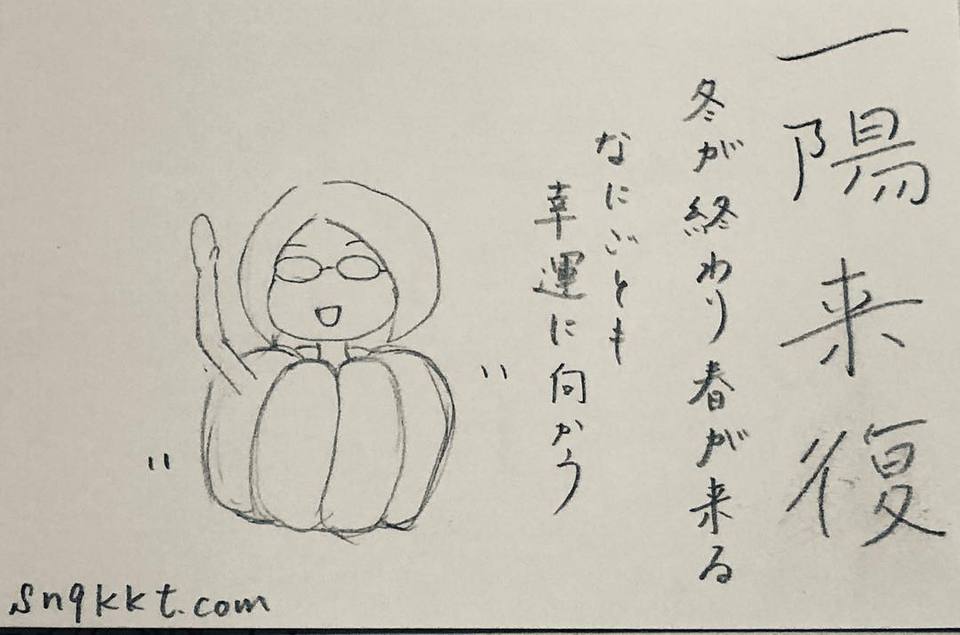 一陽来復
冬が終わり春が来る
なにごとも
幸運に向かう
snqkkt.com